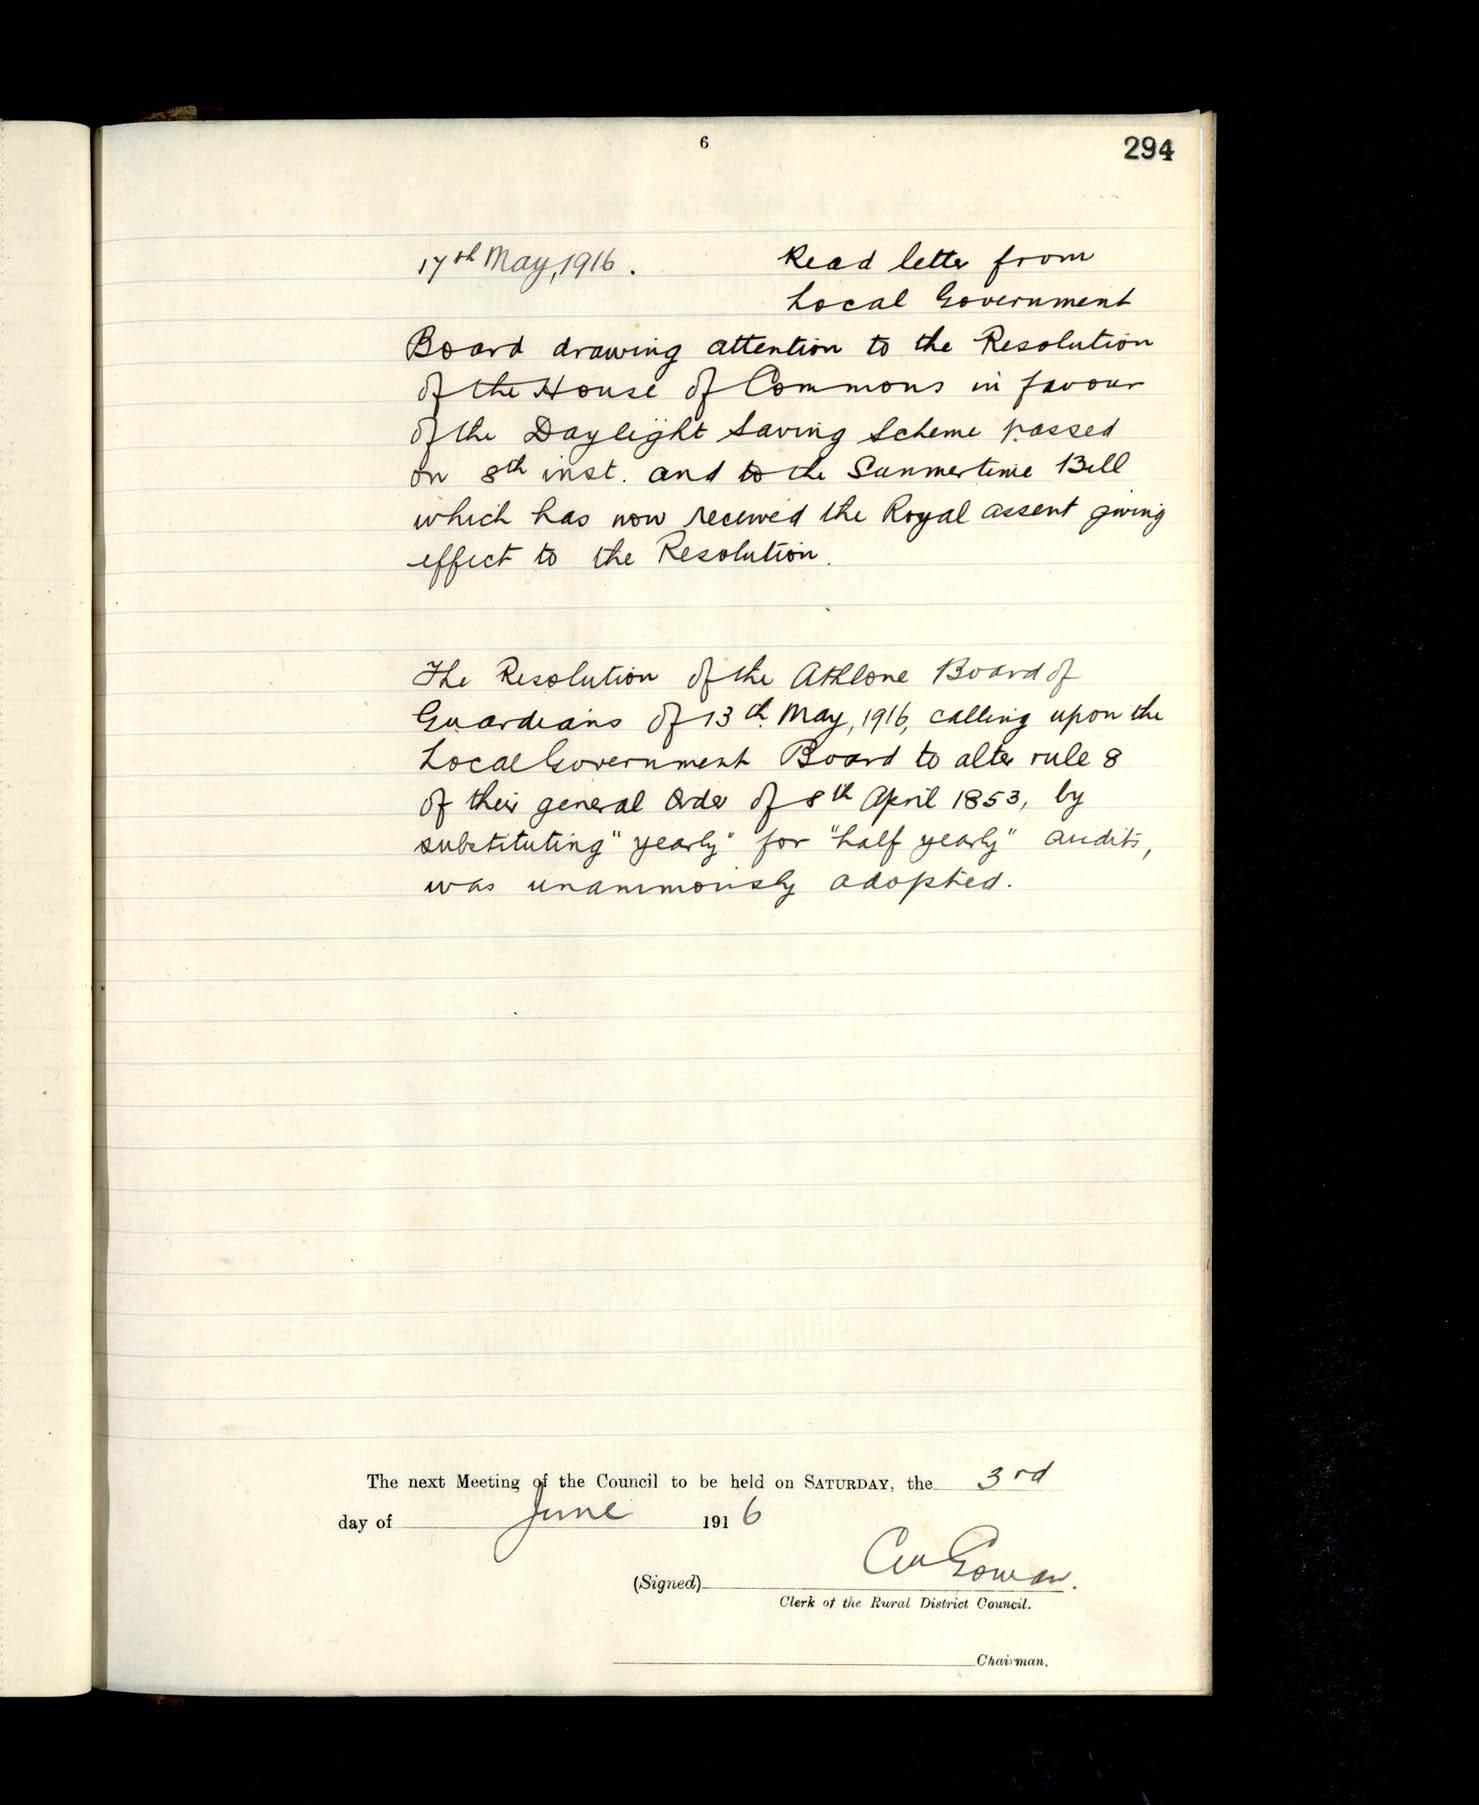 6
294
17th May, 1916. Read letter from
Local Government
Board drawing attention to the Resolution
of the House of Commons in favour
of the Daylight Saving Scheme passed
on 8th inst. and to the Summertime Bill
which has now received the Royal assent giving
effect to the Resolution.
The Resolution of the Athlone Board of
Guardians of 13th May, 1916, calling upon the
Local Government Board to alter rule 8
of their general Order of 8th April 1853, by
substituting "yearly" for "half yearly" audits,
was unanimously adopted.
The next Meeting of the Council to be held on SATURDAY, the 3rd
day of June 1916
Gowan.
(Signed)
Clerk of the Rural District Council.
Chairman.